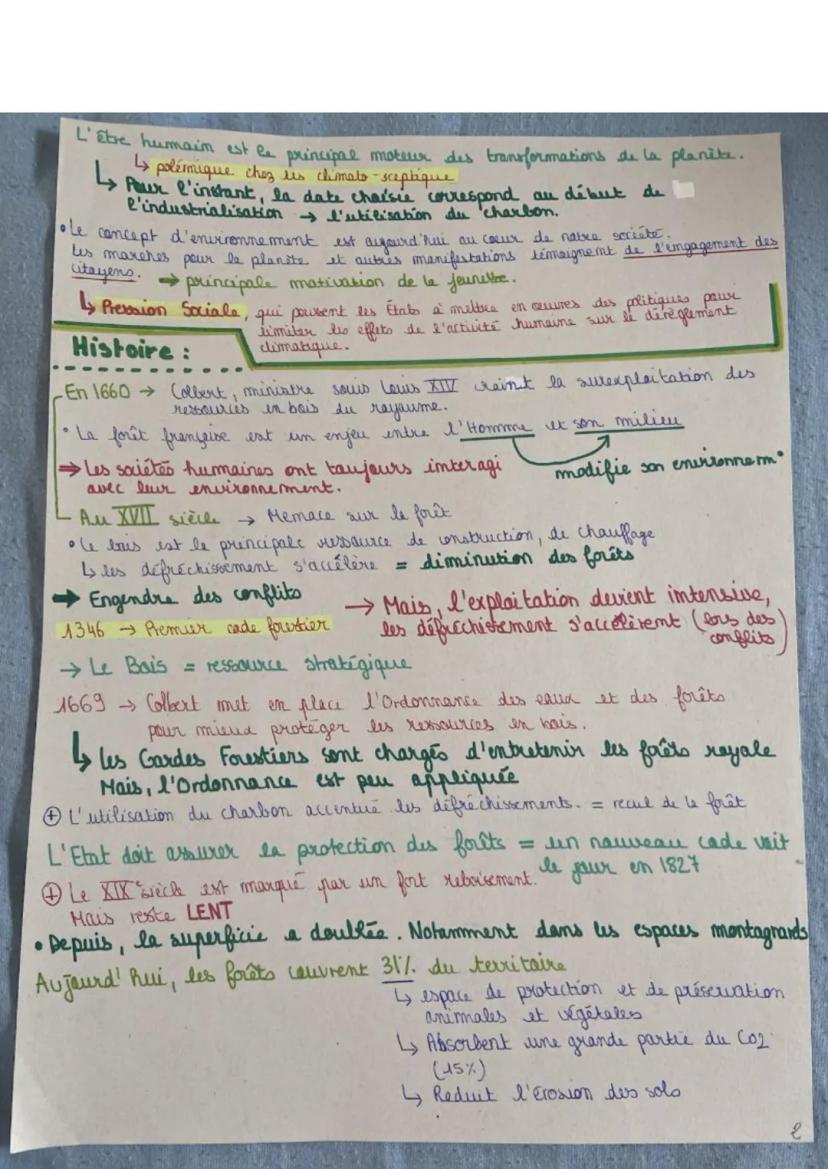 L'être humain est le principal moteur des transformations de la planète.
↳ polémique chez les climato-sceptique
↳ Pour l'instant, la date choisie correspond au début de
l'industrialisation → l'utilisation du charbon.
• Le concept d'environnement est aujourd'hui au cœur de notre société.
Les marches pour la planète et autres manifestations témoignent de l'engagement des
citoyens. ⇒ principale motivation de la jeunesse.
↳ Pression Sociale, qui poussent les États à mettre en œuvres des politiques pour
limiter les effets de l'activité humaine sur le dérèglement
climatique.
Histoire :
En 1660 → Colbert, ministre sous Louis XIV craint la surexploitation des
ressources en bois du royaume.
• La forêt française est un enjeu entre l'Homme et son milieu
modifie son environnem°
⇒ Les sociétés humaines ont toujours interagi
avec leur environnement.
Au XVII siècle → Menace sur la forêt
• Le bois est la principale ressource de construction, de chauffage
↳ les défréchissement s'accélère = diminution des forêts
➡ Engendre des conflits
→ Mais, l'exploitation devient intensive,
les défréchissement s'accélèrent (lors des
conflits)
1346 → Premier code forestier
→ Le Bois = ressource stratégique
1669 → Colbert met en place l'Ordonnance des eaux et des forêts
pour mieux protéger les ressources en bois.
↳ Les Gardes Forestiers sont chargés d'entretenir les forêts royale
Mais, l'Ordonnance est peu appliquée
⊕ L'utilisation du charbon accentue les défréchissements. = recul de la forêt
L'Etat doit assurer la protection des forêts = un nouveau code voit
le jour en 1827
⊕ Le XIX siècle est marqué par un fort reboisement.
Mais reste LENT
• Depuis, la superficie a doublée. Notamment dans les espaces montagnards
Aujourd'hui, les forêts couvrent 31% du territoire
↳ espace de protection et de préservation
animales et végétales
↳ Absorbent une grande partie du CO2
(15%)
↳ Reduit l'érosion des sols
2